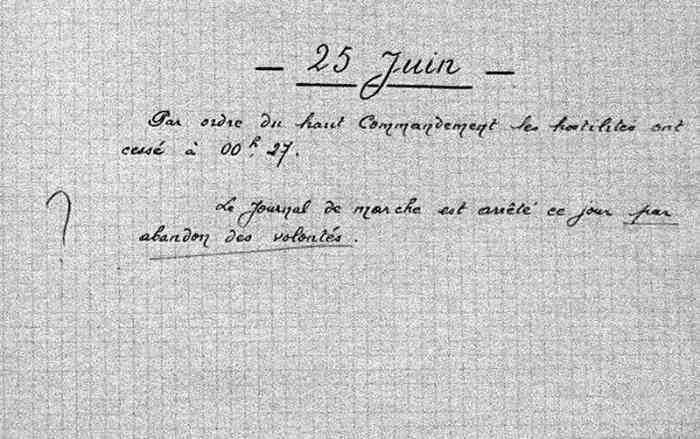 — 25 Juin —
Par ordre du haut Commandement les hostilités ont
cessé à 00h. 27.
?
Le Journal de marche est arrêté ce jour par
abandon des volontés.